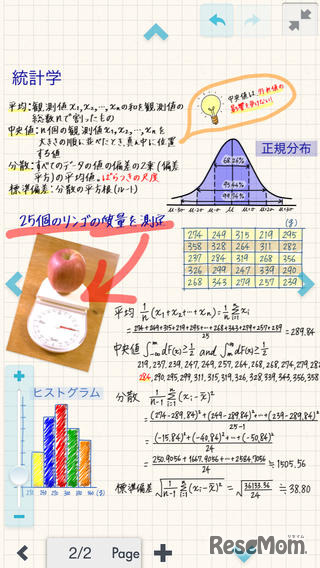 統計学
平均：観測値x₁,x₂,…,xₙの和を観測値の
総数nで割ったもの
中央値：n個の観測値x₁,x₂,…,xₙを
大きさの順に並べたとき,真ん中に位置
する値
分散：すべてのデータの値の偏差の2乗（偏差
平方）の平均値。ばらつきの尺度
標準偏差：分散の平方根（ルート）
中央値は、外れ値の
影響を受けない!
正規分布
68.26%
95.44%
99.74%
25個のリンゴの質量を測定
(g)
274 249 315 219 295
358 328 264 311 282
237 284 319 268 356
326 299 247 339 290
268 343 279 257 239
平均 1/n (x₁+x₂+…+xₙ) = 1/n Σxᵢ
= 274+249+315+219+295+…+268+343+279+257+239 / 25 = 289.84
中央値
and
219, 237, 239, 247, 249, 257, 264, 268, 268, 274, 279, 282
284, 290, 295, 299, 311, 315, 319, 326, 328, 339, 343, 356, 358
分散 1/n-1 Σ(xᵢ-x̄)²
= (274-289.84)²+(249-289.84)²+…+(239-289.84)² / 25-1
= (-15.84)²+(-40.84)²+…+(-50.84)² / 24
= 250.9056+1667.9056+…+2584.7056 / 24 ≒ 1505.56
標準偏差 √1/n-1 Σ(xᵢ-x̄)² = √36133.36/24 ≒ 38.80
ヒストグラム
2/2 Page
リセマム
ReseMom.